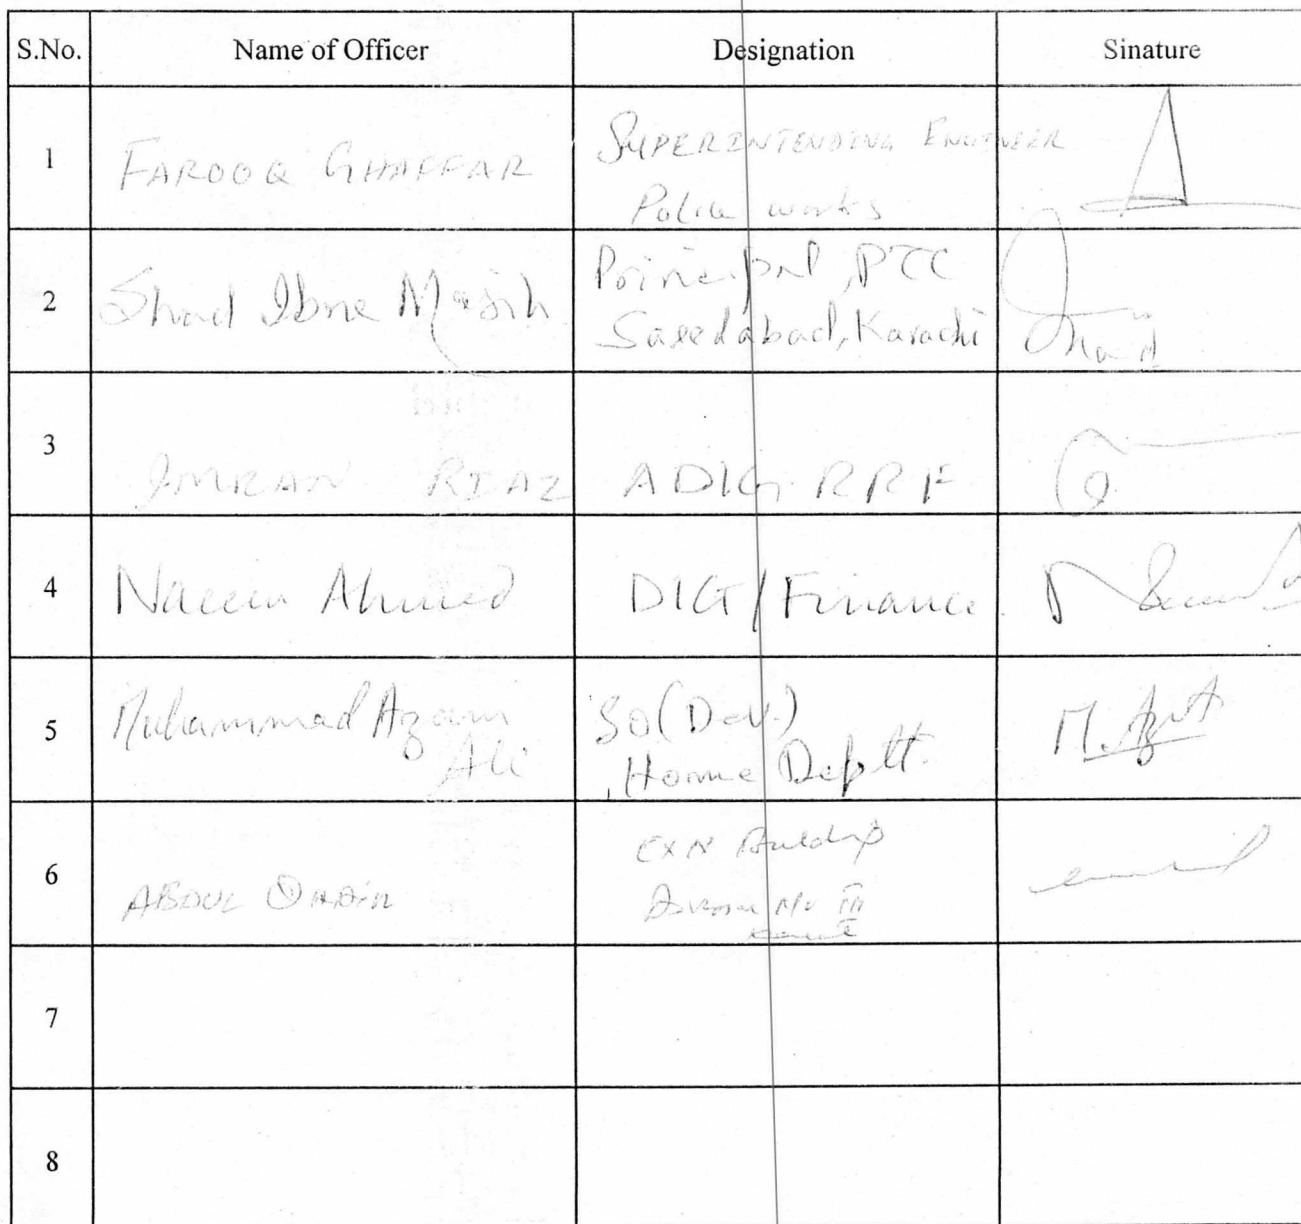 S.No. Name of Officer Designation Sinature
1 FAROOQ GHAFFAR SUPERINTENDING ENGINEER
Police works
2 Shad Ibne Masih Principal, PTC
Saeedabad, Karachi Shad
3 IMRAN RIAZ ADIG RRF
4 Naeem Ahmed DIG/Finance
5 Muhammad Azam
Ali SO(Dev.)
Home Deptt. M. Az
6 ABDUL QADIR
7
8